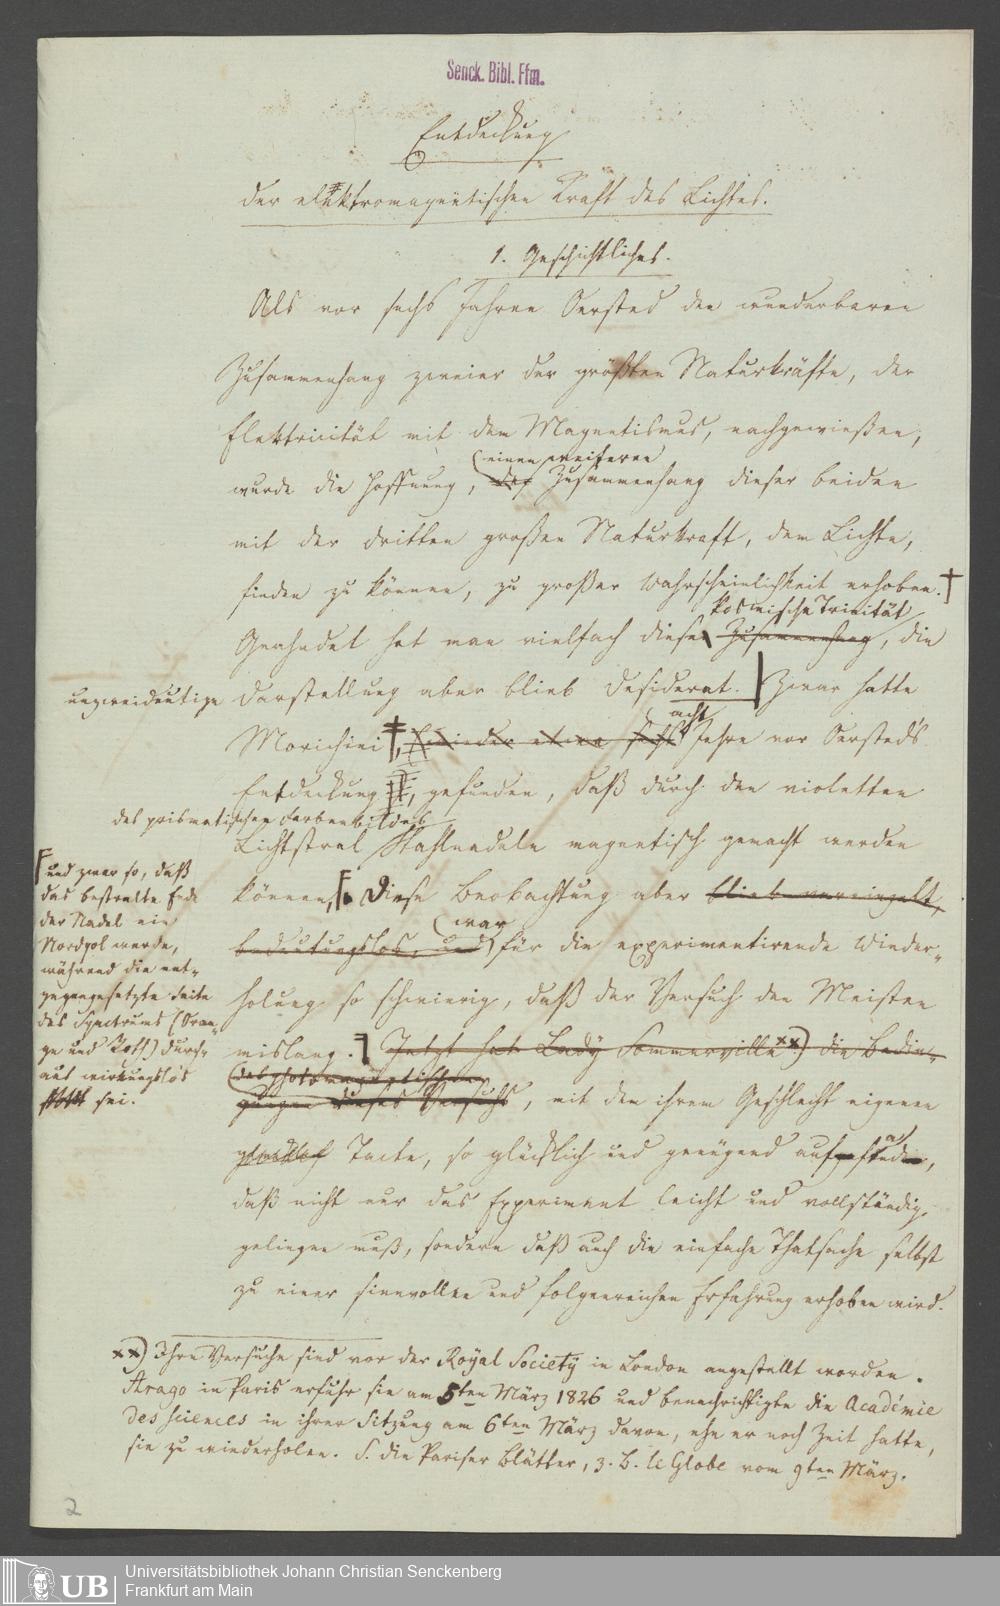 Senck. Bibl. Ffm.
Entdeckung
der elektromagnetischen Kraft des Lichtes.
1. Geschichtliches.
Als vor sechs Jahren Oersted den wunderbaren
Zusammenhang zweier der größten Naturkräfte, der
Elektricität mit dem Magnetismus, nachgewießen,
einen weiteren
wurde die Hoffnung, den Zusammenhang dieser beiden
mit der dritten großen Naturkraft, dem Lichte,
finden zu können, zu großer Wahrscheinlichkeit erhoben.
kosmische Trinität
Geahndet hat man vielfach diese Zusammenhang, die
unzweideutige Darstellung aber blieb desiderat. Zwar hatte
acht
Morichini, sechs Jahre vor Oersted's
Entdeckung, gefunden, daß durch den violetten
des prismatischen Farbenbildes
Lichtstral Stahlnadeln magnetisch gemacht werden
können, Diese Beobachtung aber blieb vereinzelt,
war
bedeutungslos, und für die experimentirende Wieder-
holung so schwierig, daß der Versuch den Meisten
mislang. Jetzt hat Lady Sommerville xx) die Bedin-
des photomagnetischen
gungen dieses Versuchs, mit dem ihrem Geschlecht eigenen
Tacte, so glücklich und genügend
daß nicht nur das Experiment leicht und vollständig
gelingen muß, sondern daß auch die einfache Thatsache selbst
zu einer sinnvollen und folgenreichen Erfahrung erhoben wird.
und zwar so, daß
das bestralte Ende
der Nadel ein
Nordpol werde,
während die ent-
gegengesetzte Seite
des Spectrums (Oran-
ge und Roth) durch-
aus wirkungslos
sei.
xx) Ihre Versuche sind vor der Royal Society in London angestellt worden.
Arago in Paris erfuhr sie am 5ten März 1826 und benachrichtigte die Académie
des sciences in ihrer Sitzung am 6ten März davon, ehe er noch Zeit hatte,
sie zu wiederholen. S. die Pariser Blätter, z. B. le Globe vom 9ten März.
2
UB
Universitätsbibliothek Johann Christian Senckenberg
Frankfurt am Main